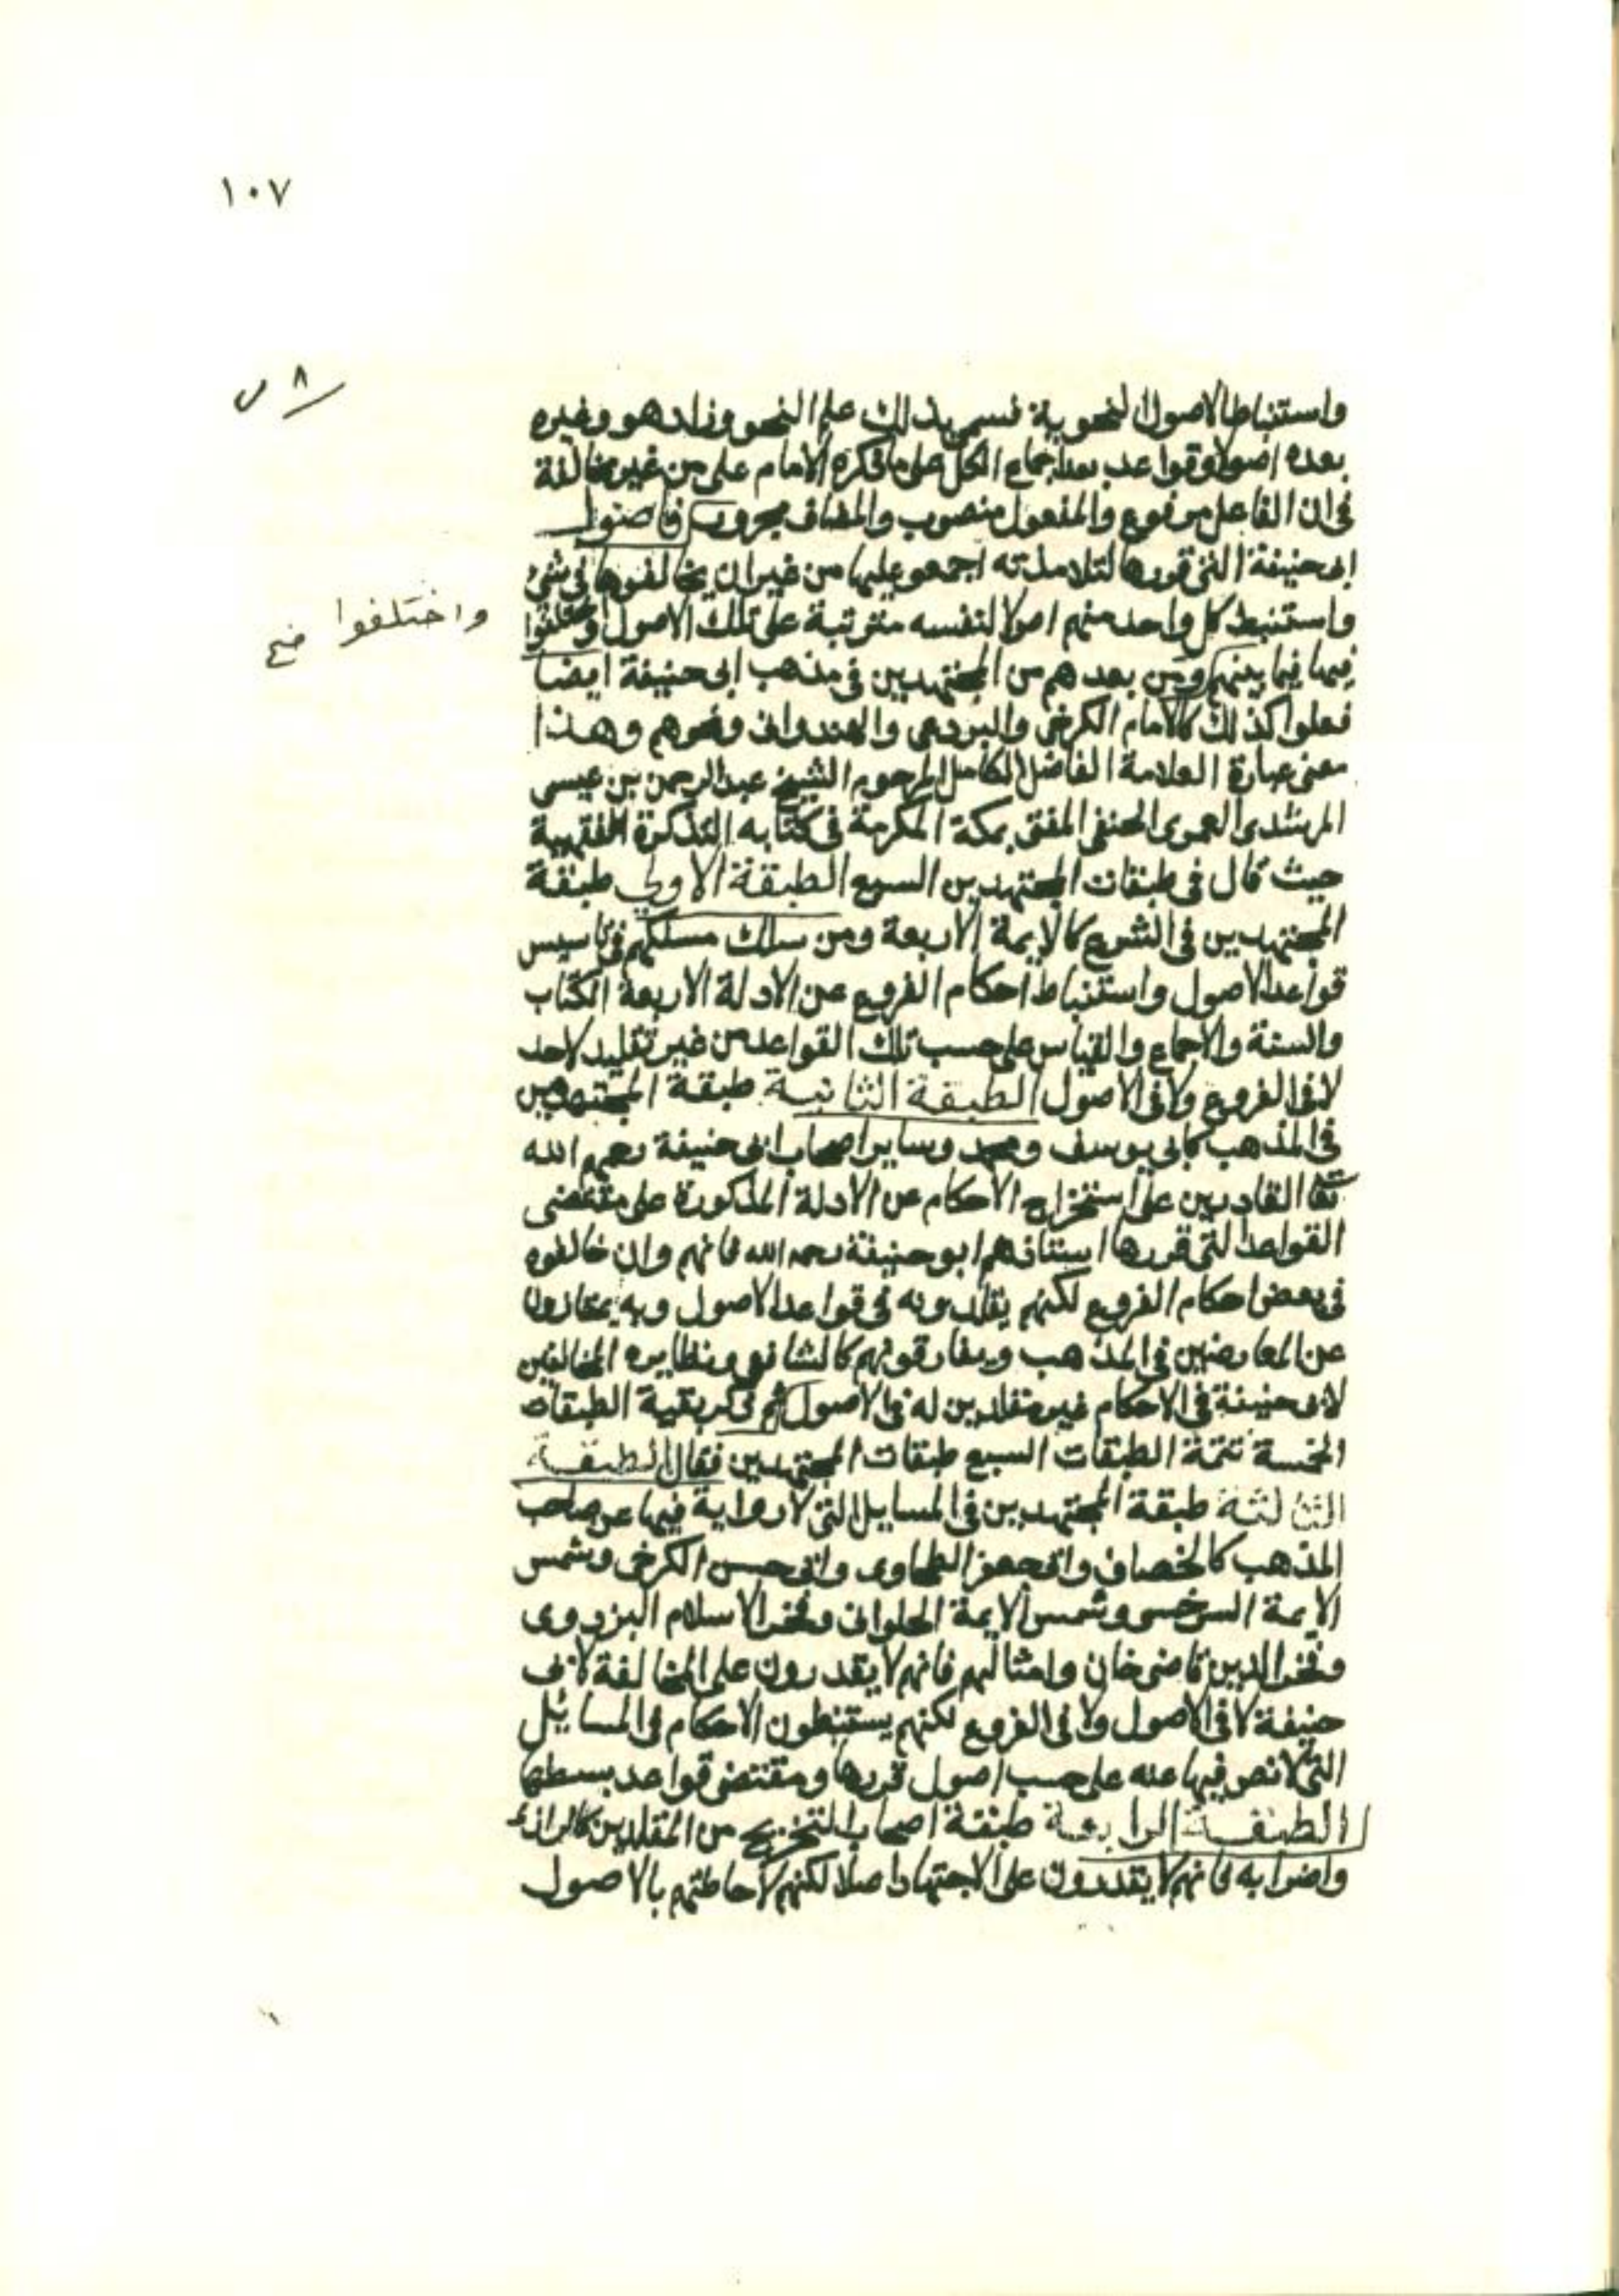 ١٠٧
٨ س
واستنباط الاصول النحوية فسمي بذلك علم النحو وزاد هو وغيره
بعده اصولا وقواعد بعد اجماع الكل على ما ذكره الامام علي من غير مخالفة
في ان الفاعل مرفوع والمفعول منصوب والمضاف مجرور فاصول
ابى حنيفة التى قررها لتلامذته اجمعو عليها من غير ان يخالفوها فى شئ
واستنبط كل واحد منهم اصولا لنفسه مترتبة على تلك الاصول واختلفوا
واختلفوا صح
فيها فيما بينهم ومن بعدهم من المجتهدين فى مذهب ابى حنيفة ايضا
فعلوا كذلك كالامام الكرخى والبردعى والهندوانى ونحوهم وهذا
معنى عبارة العلامة الفاضل الكامل المرحوم الشيخ عبد الرحمن بن عيسى
المرشدى العمرى الحنفى المفتى بمكة المكرمة فى كتابه التذكرة الفقهية
حيث قال فى طبقات المجتهدين السبع الطبقة الاولى طبقة
المجتهدين فى الشرع كالايمة الاربعة ومن سلك مسلكهم فى تاسيس
قواعد الاصول واستنباط احكام الفروع عن الادلة الاربعة الكتاب
والسنة والاجماع والقياس على حسب تلك القواعد من غير تقليد لاحد
لا فى الفروع ولا فى الاصول الطبقة الثانية طبقة المجتهدين
فى المذهب كابى يوسف ومحمد وساير اصحاب ابى حنيفة رحمهم الله
تعا القادرين على استخراج الاحكام عن الادلة المذكورة على مقتضى
القواعد التى قررها استاذهم ابو حنيفة رحمه الله فانهم وان خالفوه
فى بعض احكام الفروع لكنهم يقلدونه فى قواعد الاصول وبه يمتازون
عن المعارضين فى المذهب ويفارقونهم كالشافعى ونظايره المخالفين
لابى حنيفة فى الاحكام غير مقلدين له فى الاصول ثم ذكر بقية الطبقات
الخمسة تتمة الطبقات السبع طبقات المجتهدين فقال الطبقة
الثالثة طبقة المجتهدين فى المسايل التى لا رواية فيها عن صاحب
المذهب كالخصاف وابى جعفر الطحاوى وابى حسن الكرخى وشمس
الايمة السرخسى وشمس الايمة الحلوانى وفخر الاسلام البزدوى
وفخر الدين قاضى خان وامثالهم فانهم لا يقدرون على المخالفة لابى
حنيفة لا فى الاصول ولا فى الفروع لكنهم يستنبطون الاحكام فى المسائيل
التى لا نص فيها عنه على حسب اصول قررها ومقتضى قواعد بسطها
الطبقة الرابعة طبقة اصحاب التخريج من المقلدين كالرازى
واضرابه فانهم لا يقدرون على الاجتهاد اصلا لكنهم لاحاطتهم بالاصول